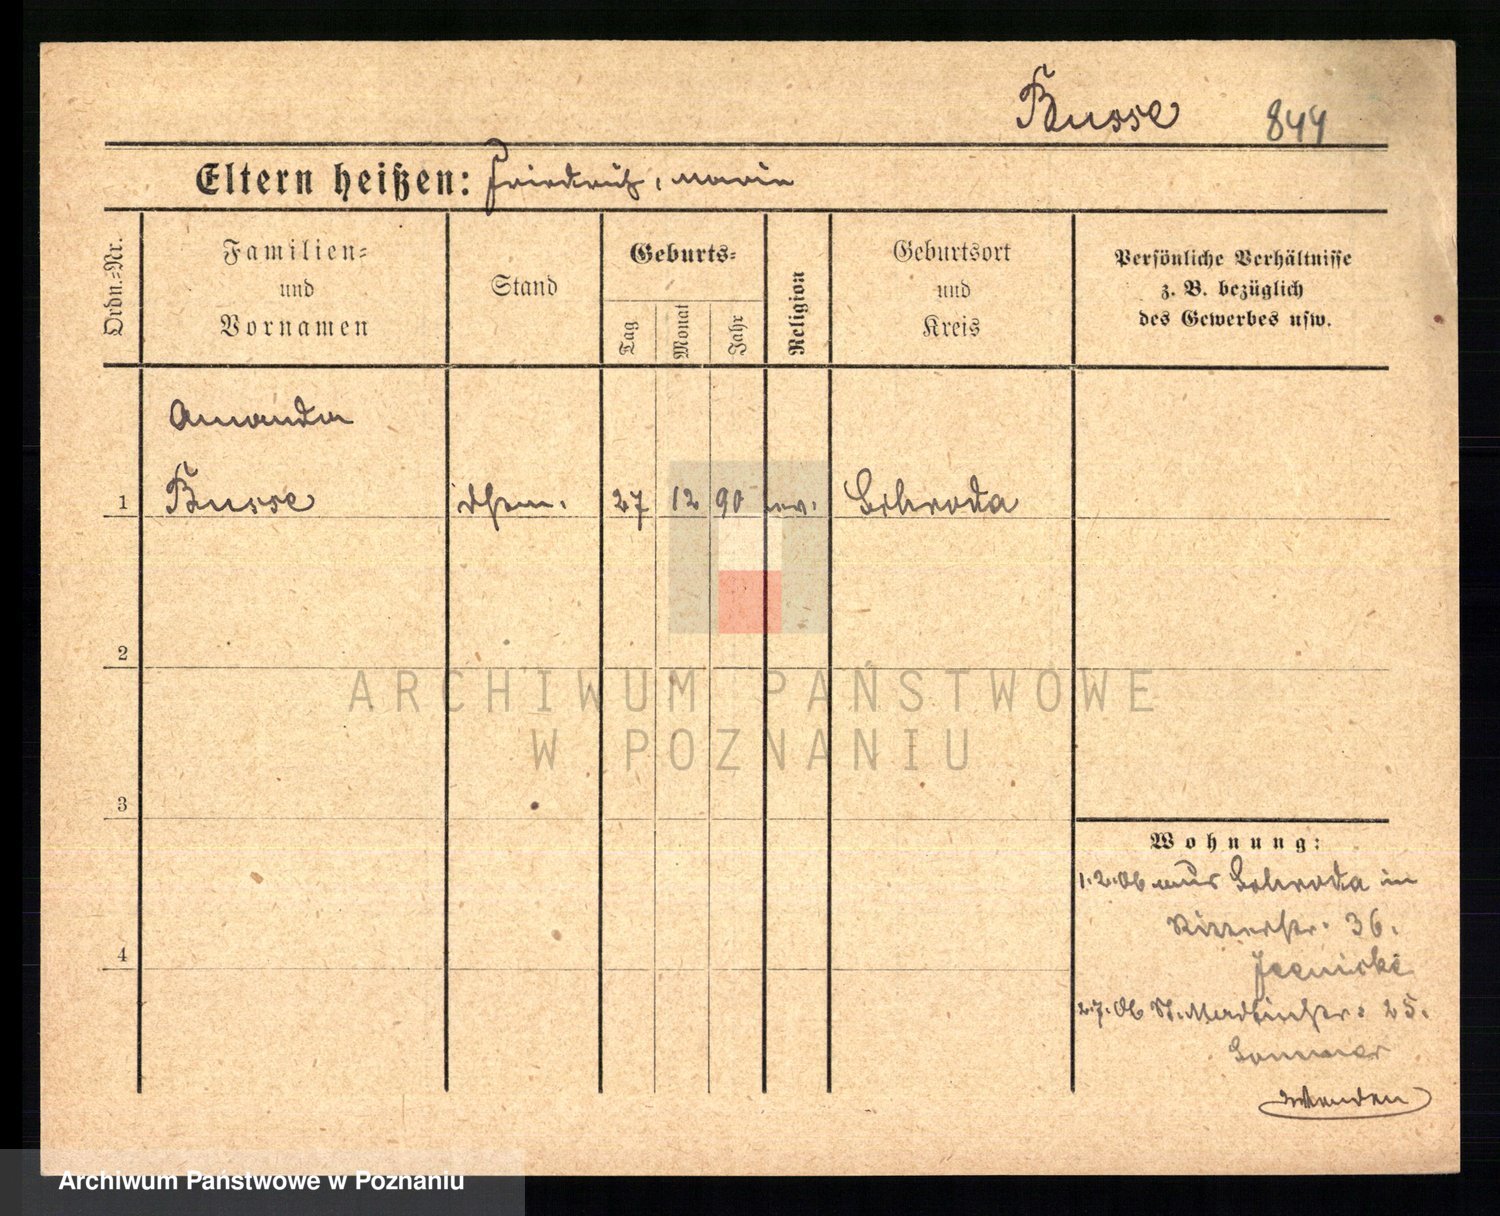 Busse 844
Eltern heißen: Friedrich, Marie
Ordn.-Nr.
Familien-
und
Vornamen
Stand
Geburts-
Tag
Monat
Jahr
Religion
Geburtsort
und
Kreis
Persönliche Verhältnisse
z. B. bezüglich
des Gewerbes usw.
Amanda
1 Busse 27 12 90 ev. Schroda
2
ARCHIWUM PAŃSTWOWE
W POZNANIU
3
Wohnung:
1.2.06 aus Schroda in
Ritterstr. 36.
4
2.7.06 St. Martinstr. 25.
Sommer
Wenden
Archiwum Państwowe w Poznaniu